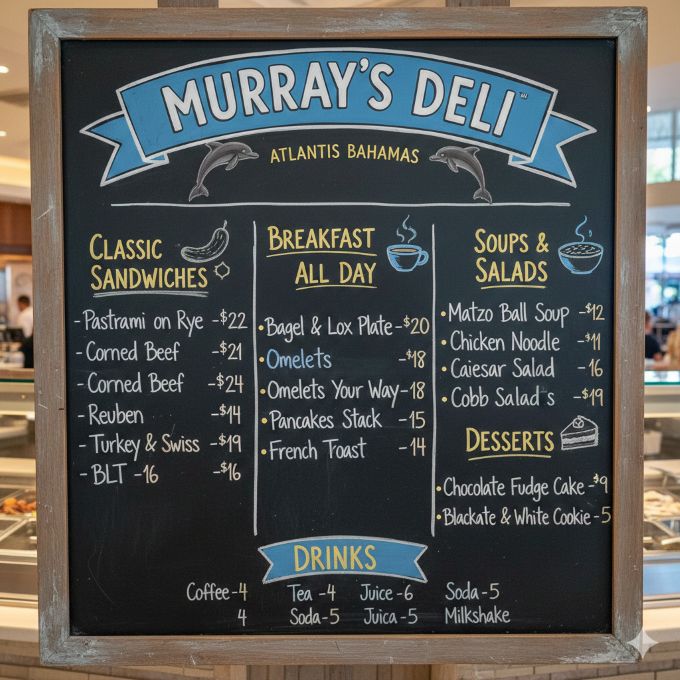 MURRAY'S DELI
ATLANTIS BAHAMAS
CLASSIC
SANDWICHES
- Pastrami on Rye -$22
- Corned Beef -$21
- Corned Beef -$24
- Reuben -$14
- Turkey & Swiss -$19
- BLT -16 -$16
BREAKFAST
ALL DAY
• Bagel & Lox Plate -$20
• Omelets -$18
• Omelets Your Way -18
• Pancakes Stack -15
• French Toast -14
SOUPS &
SALADS
• Matzo Ball Soup -$12
• Chicken Noodle -$11
• Caiesar Salad -16
• Cobb Salad s -$19
DESSERTS
• Chocolate Fudge Cake -$9
• Blackate & White Cookie -5
DRINKS
Coffee -4 Tea -4 Juice -6 Soda -5
4 Soda -5 Juica -5 Milkshake